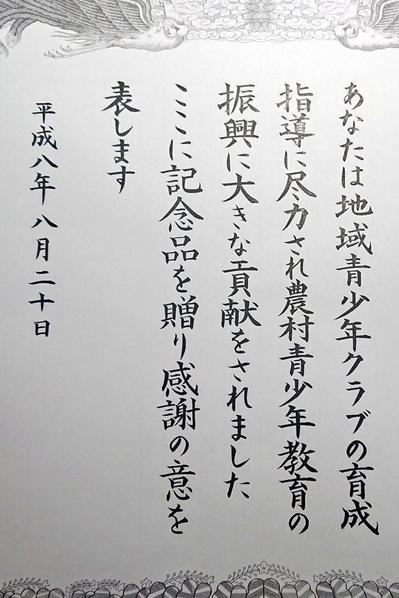 あなたは地域青少年クラブの育成
指導に尽力され農村青少年教育の
振興に大きな貢献をされました
ここに記念品を贈り感謝の意を
表します
平成八年八月二十日